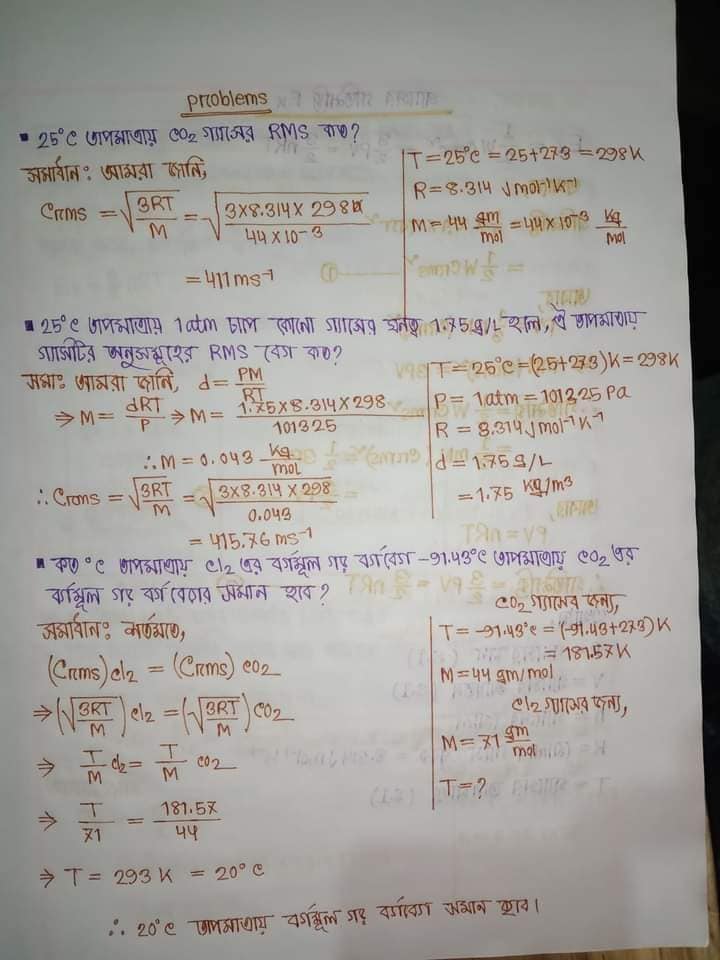 problems
▪ 25°C তাপমাত্রায় CO2 গ্যাসের RMS কত?
সমাধান: আমরা জানি,
Crms = √(3RT/M) = √(3×8.314×298/44×10⁻³)
= 411 ms⁻¹
T = 25°C = 25+273 = 298K
R = 8.314 Jmol⁻¹K⁻¹
M = 44 gm/mol = 44×10⁻³ kg/mol
▪ 25°C তাপমাত্রায় 1atm চাপে কোনো গ্যাসের ঘনত্ব 1.75g/L হলে, ঐ তাপমাত্রায়
গ্যাসটির অনুসমূহের RMS বেগ কত?
সমা: আমরা জানি, d = PM/RT
⇒ M = dRT/P ⇒ M = 1.75×8.314×298/101325
∴ M = 0.043 kg/mol
∴ Crms = √(3RT/M) = √(3×8.314×298/0.043)
= 415.76 ms⁻¹
T = 25°C = (25+273)K = 298K
P = 1atm = 101325 Pa
R = 8.314 Jmol⁻¹K⁻¹
d = 1.75 g/L
= 1.75 kg/m³
▪ কত °C তাপমাত্রায় Cl2 এর বর্গমূল গড় বর্গবেগ -91.43°C তাপমাত্রায় CO2 এর
বর্গমূল গড় বর্গ বেগের সমান হবে?
সমাধান: শর্তমতে,
(Crms)Cl2 = (Crms)CO2
⇒ (√(3RT/M))Cl2 = (√(3RT/M))CO2
⇒ T/M Cl2 = T/M CO2
⇒ T/71 = 181.57/44
⇒ T = 293 K = 20°C
∴ 20°C তাপমাত্রায় বর্গমূল গড় বর্গবেগ সমান হবে।
CO2 গ্যাসের জন্য,
T = -91.43°C = (-91.43+273)K
= 181.57K
M = 44 gm/mol
Cl2 গ্যাসের জন্য,
M = 71 gm/mol
T = ?